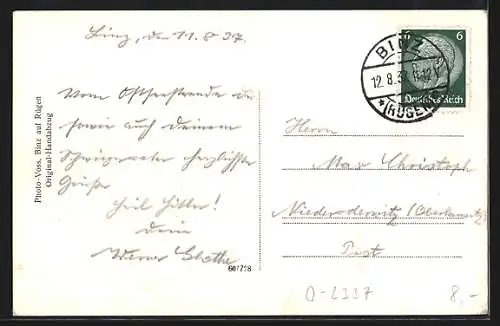 Binz, den 11.8.37.
Vom Ostseestrande
sowie auch Deinem
Schwiegervater herzlichste
Grüße
Heil Hitler!
Dein
Werner
Photo-Voss, Binz auf Rügen
Original-Handabzug
607/28
BINZ
12.8.37
(RÜGEN)
6
Deutsches Reich
Herrn
Max Christoph
Niederoderwitz (Oberlausitz)
Post
O-L337
8,-